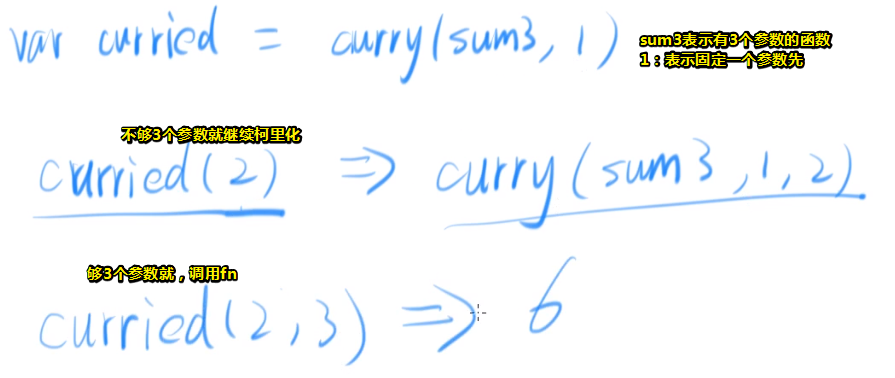 var curried = curry(sum3, 1)
sum3表示有3个参数的函数
1：表示固定一个参数先
不够3个参数就继续柯里化
curried(2) => curry(sum3,1,2)
够3个参数就，调用fn
curried(2,3) => 6